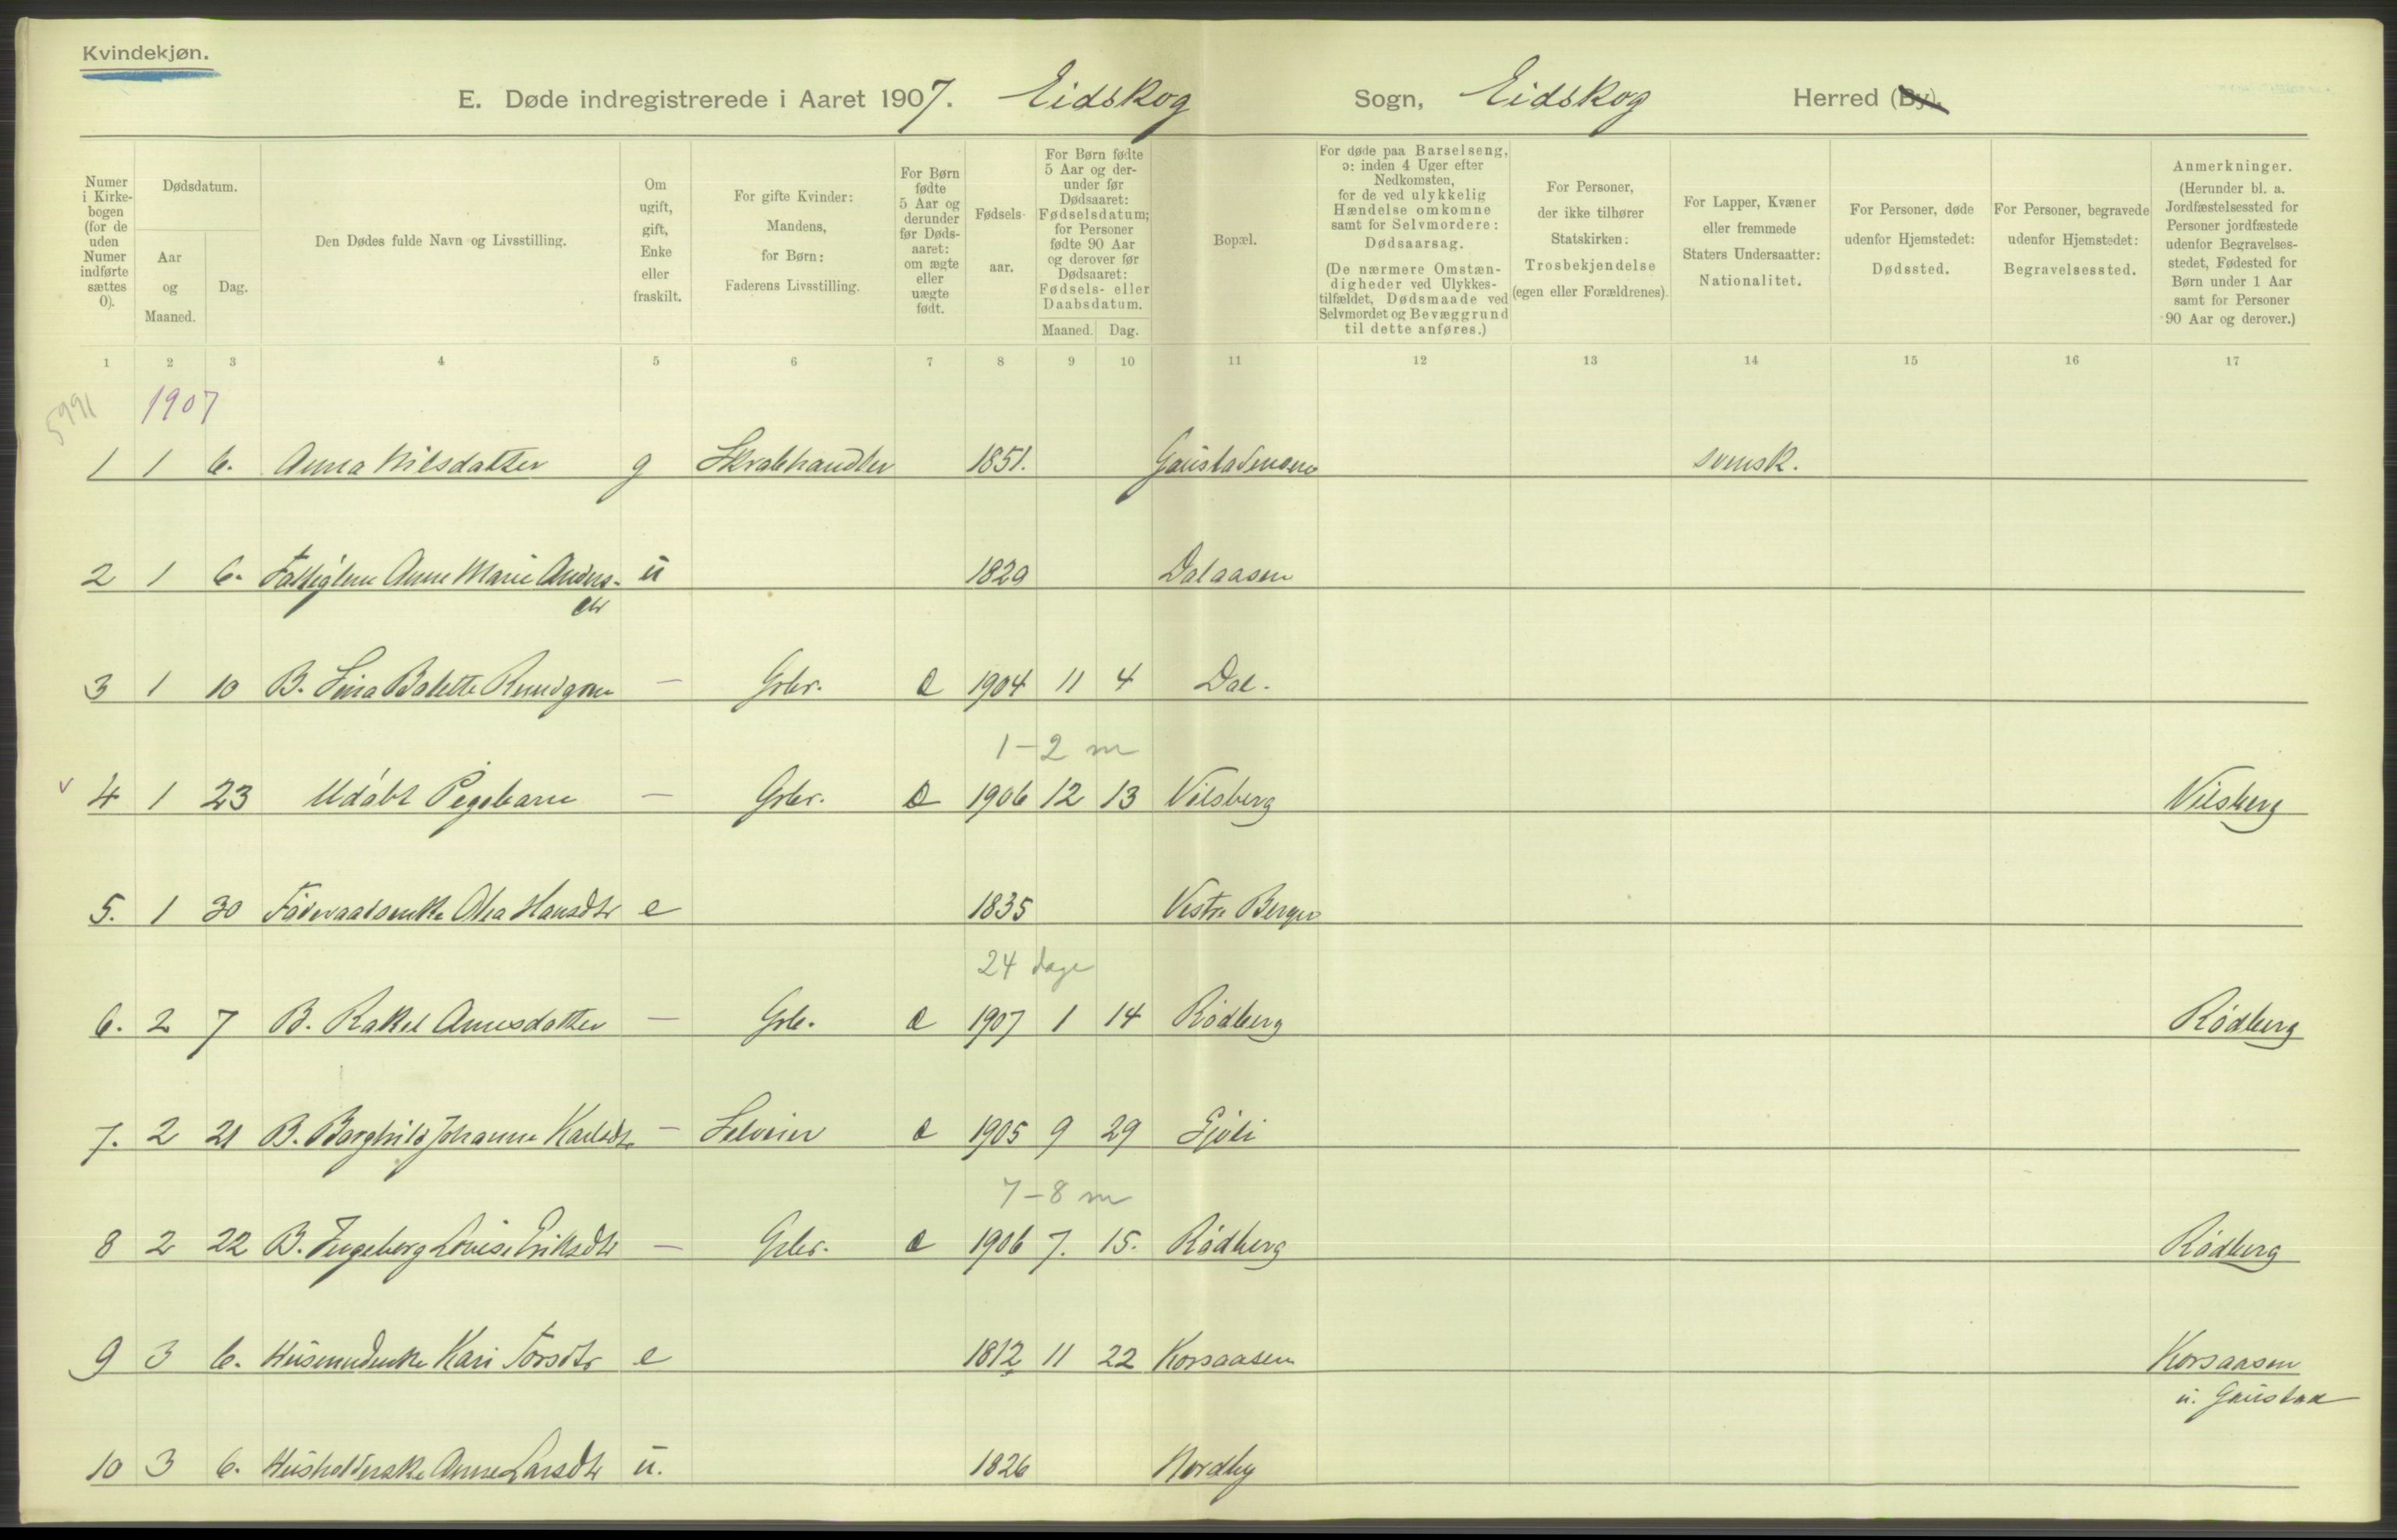 Kvindekjøn.
E. Døde indregistrerede i Aaret 1907. Eidskog Sogn, Eidskog Herred (By).
Numer i Kirke- bogen (for de uden Numer indførte sættes 0).
Dødsdatum.
Aar og Maaned.
Dag.
Den Dødes fulde Navn og Livsstilling.
Om ugift, gift, Enke eller fraskilt.
For gifte Kvinder: Mandens, for Børn: Faderens Livsstilling.
For Børn fødte 5 Aar og derunder før Døds- aaret: om ægte eller uægte født.
Fødsels- aar.
For Børn fødte 5 Aar og der- under før Dødsaaret: Fødselsdatum; for Personer fødte 90 Aar og derover før Dødsaaret: Fødsels- eller Daabsdatum.
Maaned. Dag.
Bopæl.
For døde paa Barselseng, ɔ: inden 4 Uger efter Nedkomsten, for de ved ulykkelig Hændelse omkomne samt for Selvmordere: Dødsaarsag. (De nærmere Omstæn- digheder ved Ulykkes- tilfældet, Dødsmaade ved Selvmordet og Bevæggrund til dette anføres.)
For Personer, der ikke tilhører Statskirken: Trosbekjendelse (egen eller Forældrenes).
For Lapper, Kvæner eller fremmede Staters Undersaatter: Nationalitet.
For Personer, døde udenfor Hjemstedet: Dødssted.
For Personer, begravede udenfor Hjemstedet: Begravelsessted.
Anmerkninger. (Herunder bl. a. Jordfæstelsessted for Personer jordfæstede udenfor Begravelses- stedet, Fødested for Børn under 1 Aar samt for Personer 90 Aar og derover.)
1 2 3 4 5 6 7 8 9 10 11 12 13 14 15 16 17
5991 1907
1 1 6. Anna Nilsdatter g Skrabhandler 1851. Gaustadmoen svensk.
2 1 6. Fattiglem Anne Marie Anders- u 1829 Dalaasen
dtr
3 1 10 B. Lina Balette — Gbr. 1904 11 4 Dal.
1-2 m
v 4 1 23 Udøbt Pigebarn — Gbr. 1906 12 13 Vilsberg Vilsberg
5. 1 30 Føderaadsenke Olea Hansdtr e 1835 Vestre Berger
24 dage
6. 2 7 B. Rakel Arnesdatter — Gbr. 1907 1 14 Rödberg Rödberg
7. 2 21 B. Borghild Johanne Karlsdtr — Selveier 1905 9 29
7-8 m
8 2 22 B. Ingeborg Lovise Eriksdtr — Gbr. 1906 7. 15. Rödberg Rödberg
9 3 6. Husmandsenke Kari Torsdtr e 1812 11 22 Korsaasen Korsaasen
u. Gaustad
10 3 6. Husholderske Anne Larsdtr u. 1826 Nordby